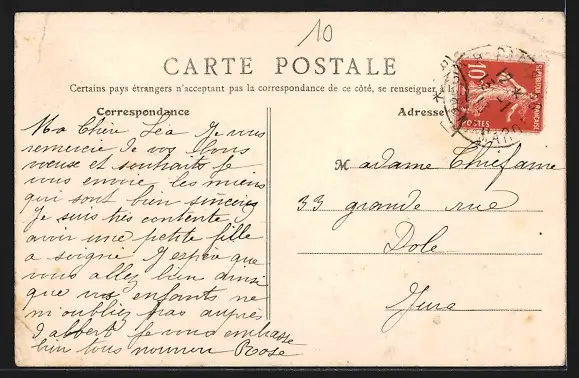 10
CARTE POSTALE
Certains pays étrangers n'acceptent pas la correspondance de ce côté, se renseigner
Correspondance
Ma Chère Léa Je vous
remercie de vos bons
voeuse et souhaits Je
vous envoie les miens
qui sont bien sincères
Je suis très contente d
avoir une petite fille
a soigné J'espère que
vous allez bien ainsi
que vos enfants ne
m'oubliez pas auprès
d'albert Je vous embrasse
bien tous Rose
Adresse
Madame Thiefaine
33 grande rue
Dole
Jura
10
POSTES
REPUBLIQUE FRANÇAISE